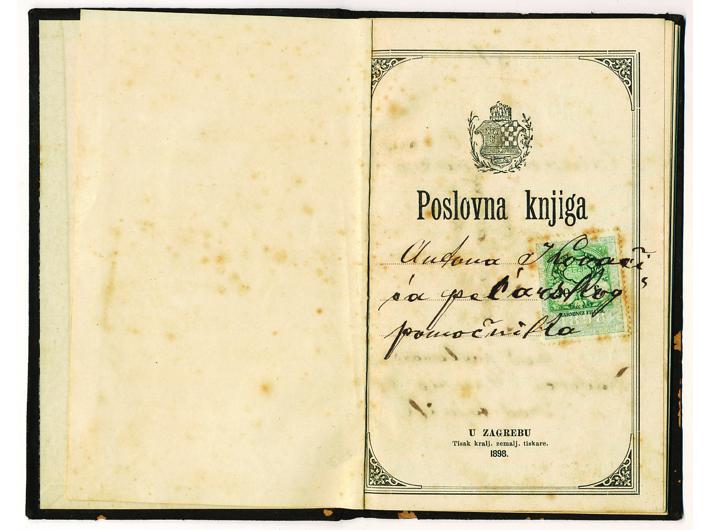 Poslovna knjiga
Antuna Kovači
ća pećarskog
pomoćnika
U ZAGREBU
Tisak kralj. zemalj. tiskare.
1898.